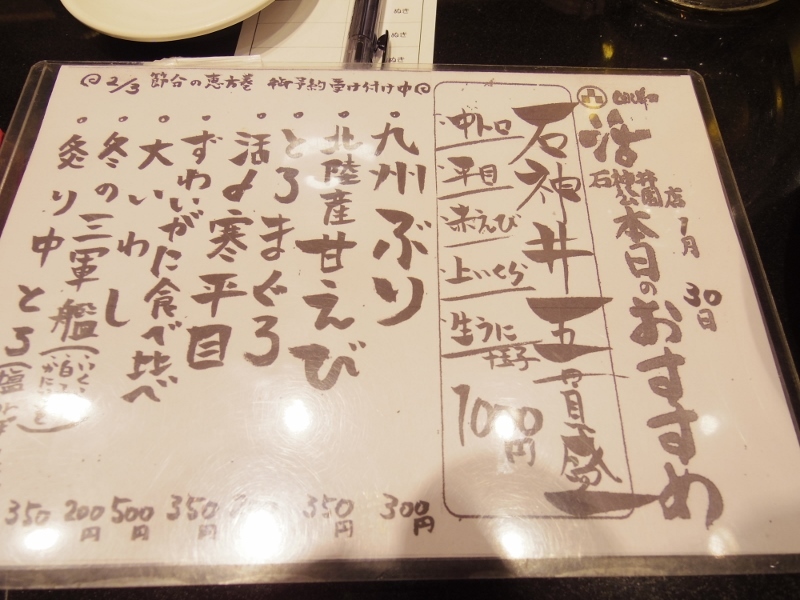 ぬき
ぬき
ぬき
2/3 節分の恵方巻 御予約受け付け中
活
石神井公園店
1月30日
本日のおすすめ
石神井五貫盛
中トロ
平目
赤えび
上いくら
生うに
玉子
1000円
九州ぶり 300円
北陸産甘えび 350円
とろまぐろ
活〆寒平目
ずわいがに食べ比べ
大いわし
冬の三軍艦
炙り中とろ
350円
500円
200円
350